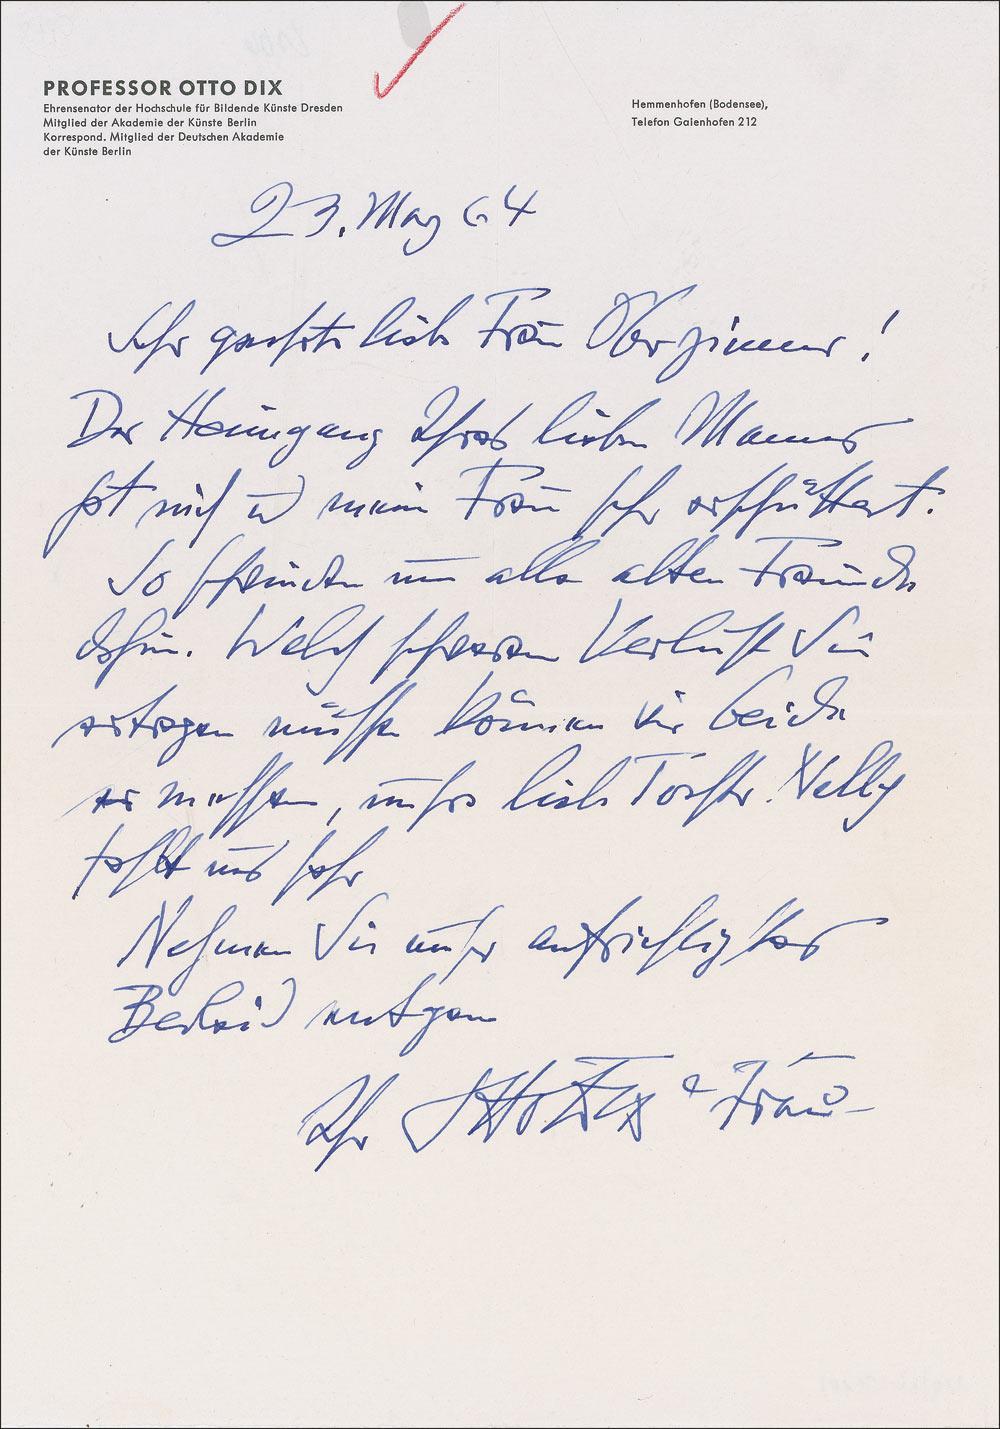 PROFESSOR OTTO DIX
Ehrensenator der Hochschule für Bildende Künste Dresden
Mitglied der Akademie der Künste Berlin
Korrespond. Mitglied der Deutschen Akademie
der Künste Berlin
Hemmenhofen (Bodensee),
Telefon Gaienhofen 212
23. May 64
Sehr geehrte liebe Frau Oberzimmer!
Der Heimgang Ihres lieben Mannes
hat mich u meine Frau sehr erschüttert.
So schwinden nun alle alten Freunde
dahin. Welch schweren Verlust Sie
ertragen müssen können wir beide
ermessen, unsre liebe Tochter Nelly
fehlt uns sehr
Nehmen Sie unser aufrichtigstes
Beileid entgegen
Ihr Otto Dix & Frau